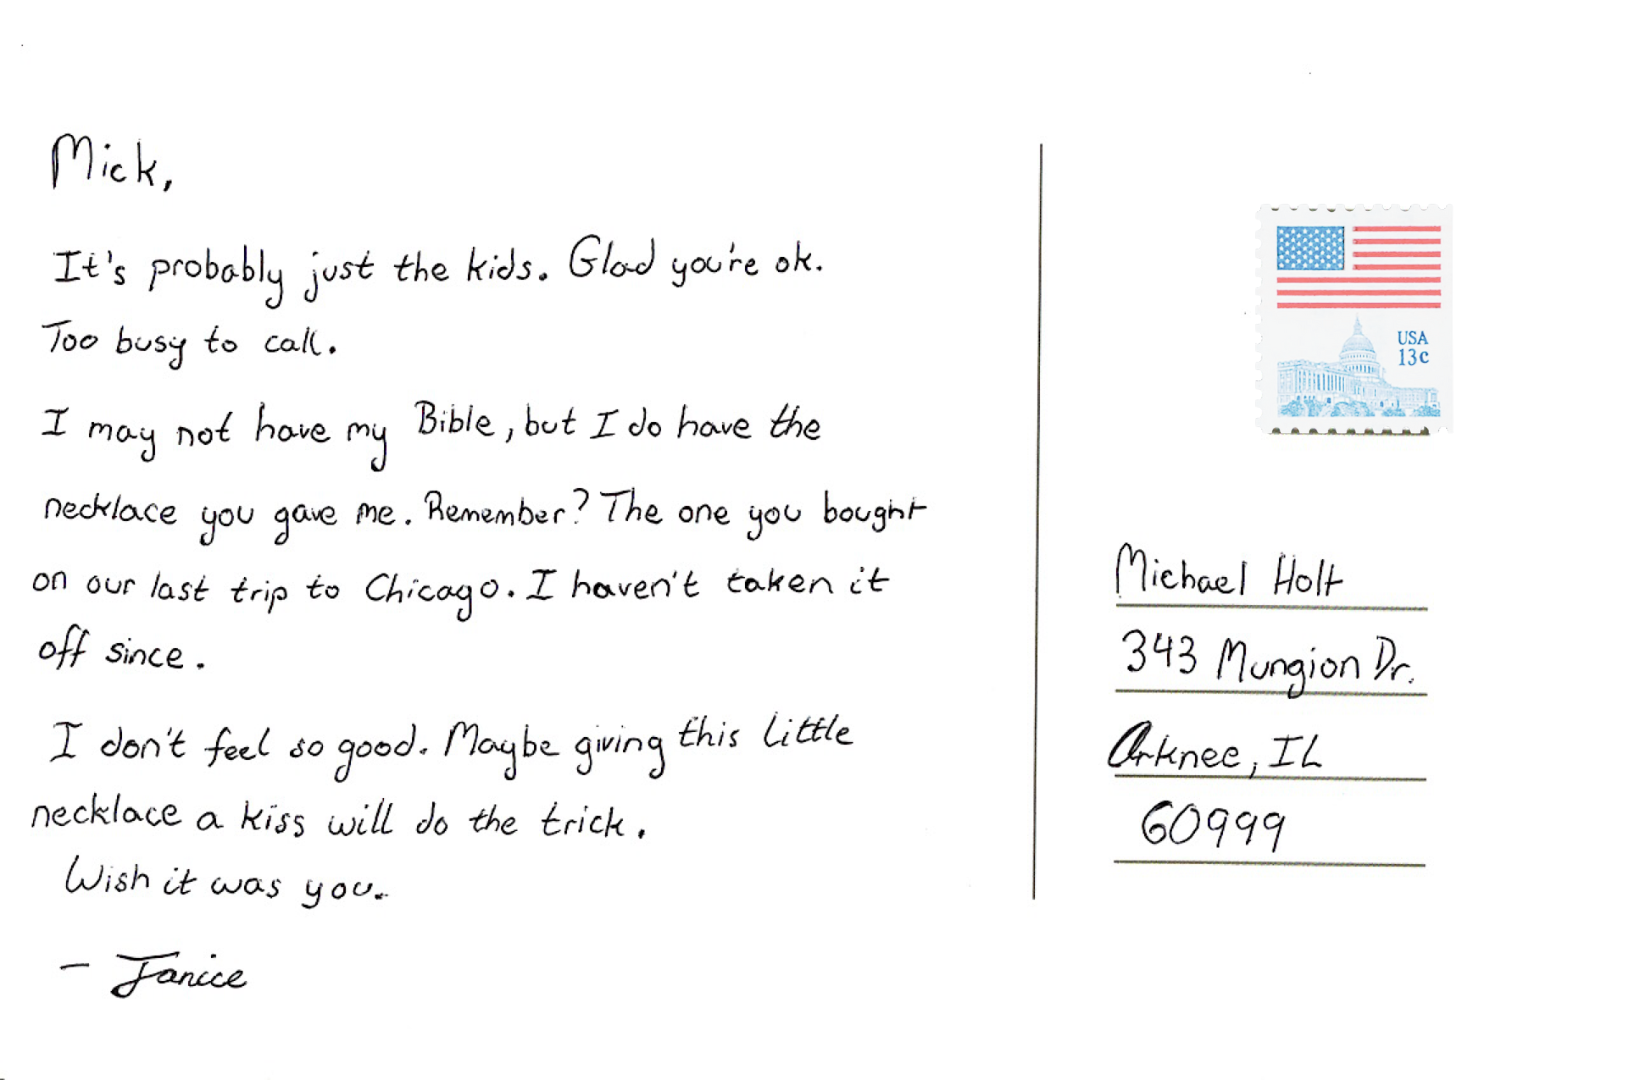 Mick,
It's probably just the kids. Glad you're ok.
Too busy to call.
I may not have my Bible, but I do have the
necklace you gave me. Remember? The one you bought
on our last trip to Chicago. I haven't taken it
off since.
I don't feel so good. Maybe giving this little
necklace a kiss will do the trick.
Wish it was you.
- Janice
USA
13c
Michael Holt
343 Mungion Dr.
Arknee, IL
60999